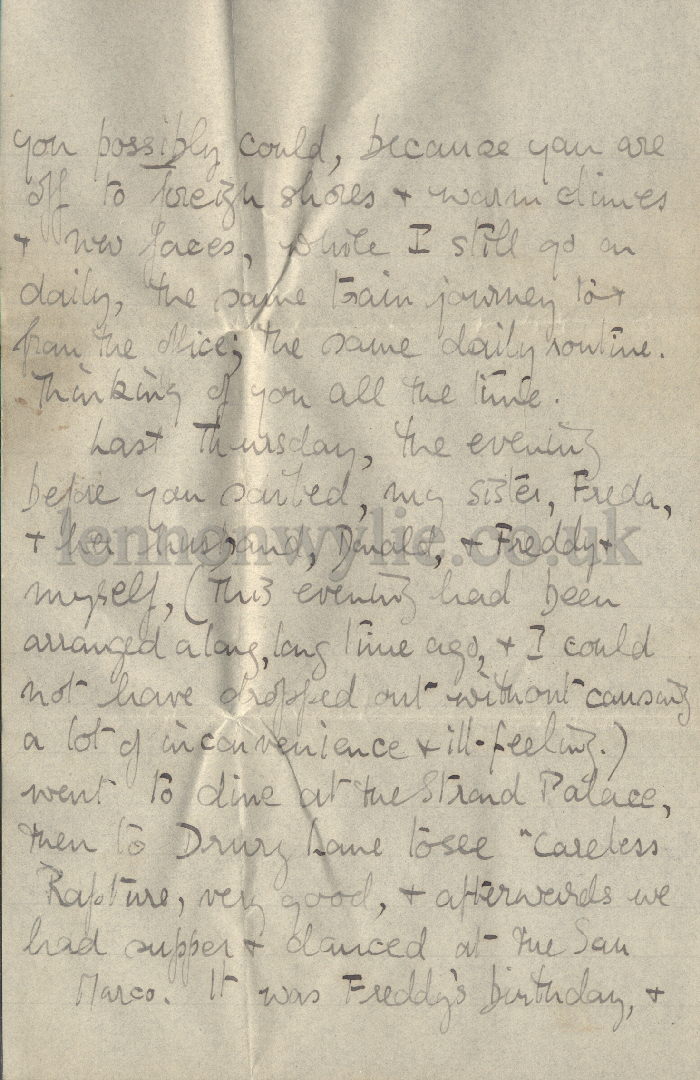 you possibly could, because you are
off to foreign shores + warm climes
+ new faces, while I still go on
daily, the same train journey to +
from the office; the same daily routine.
Thinking of you all the time.
Last Thursday, the evening
before you sailed, my sister, Freda,
+ her husband, Donald, + Freddy +
lennonwylie.co.uk
myself, (This evening had been
arranged a long, long time ago, + I could
not have dropped out without causing
a lot of inconvenience + ill-feeling.)
went to dine at the Strand Palace,
then to Drury Lane to see "Careless
Rapture, very good, + afterwards we
had supper + danced at the San
Marco. It was Freddy's birthday, +